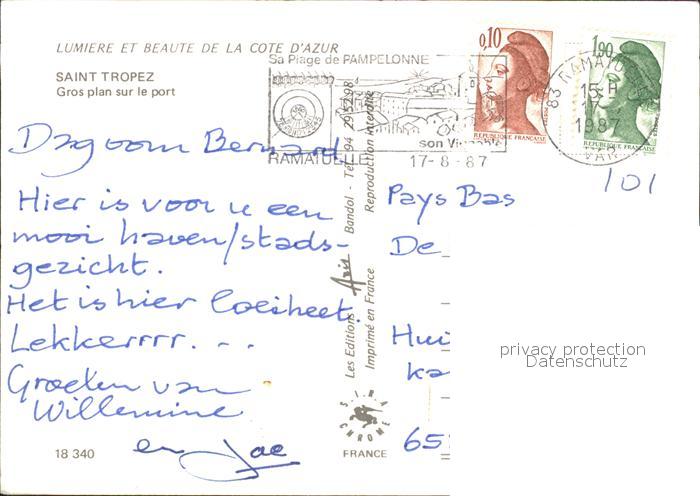 LUMIERE ET BEAUTE DE LA COTE D'AZUR
SAINT TROPEZ
Gros plan sur le port
Sa Plage de PAMPELONNE
son Vi
RAMATUELLE
17-8-87
0,10
REPUBLIQUE FRANÇAISE
1,90
REPUBLIQUE FRANÇAISE
83 RAMATU
15 H
17
1987
VAR
101
Dag oom Bernard
Hier is voor u een
mooi haven/stads-
gezicht.
Het is hier loeiheet.
Lekkerrrr. . .
Groeten van
Willemine
en Jac
18 340
Les Editions Aris Bandol - Tél. 94 29.52.98
Imprimé en France Reproduction interdite
S.I.R.A.
CHROME
FRANCE
Pays Bas
De
Hui
ka
65
privacy protection
Datenschutz